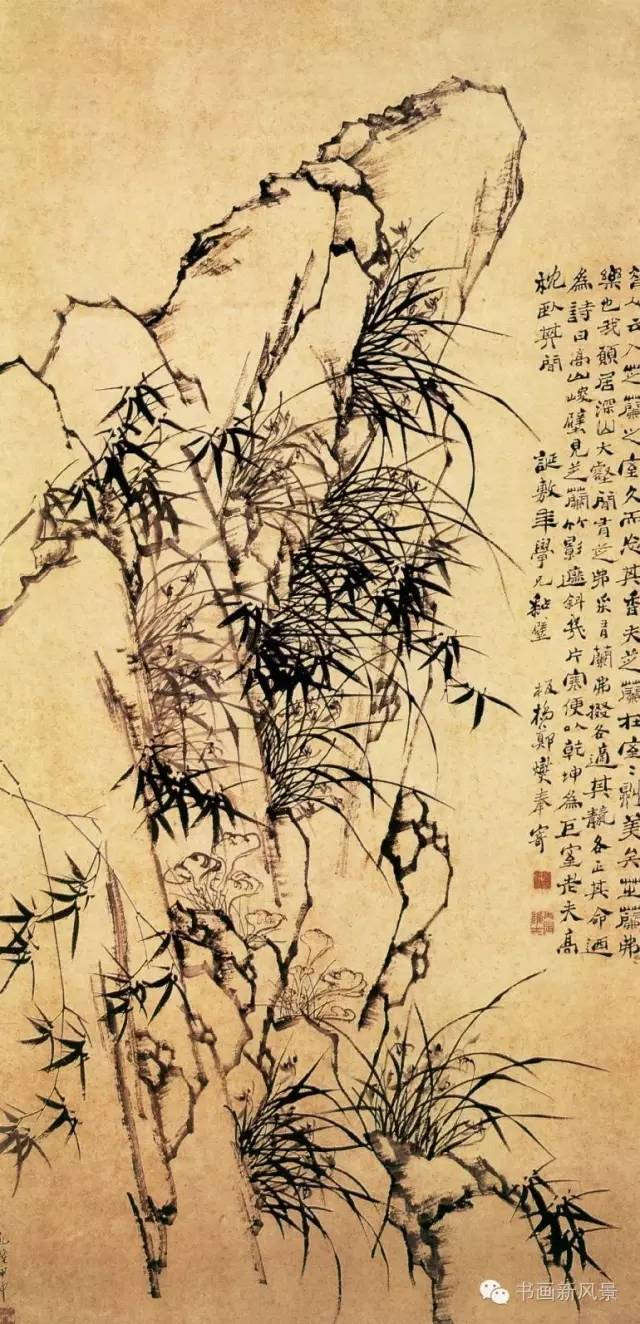 昔人云入芝蘭之室久而忘其香夫芝蘭在室〻則美矣芝蘭弗
樂也我願居深山大壑間有芝弗采有蘭弗掇各適其各正其命迺
為詩曰高山峻壁見芝蘭竹影遮斜幾片寒便以乾坤為巨室老夫高
枕臥其間 誕敷年學兄 板橋鄭燮奉寄
书画新风景